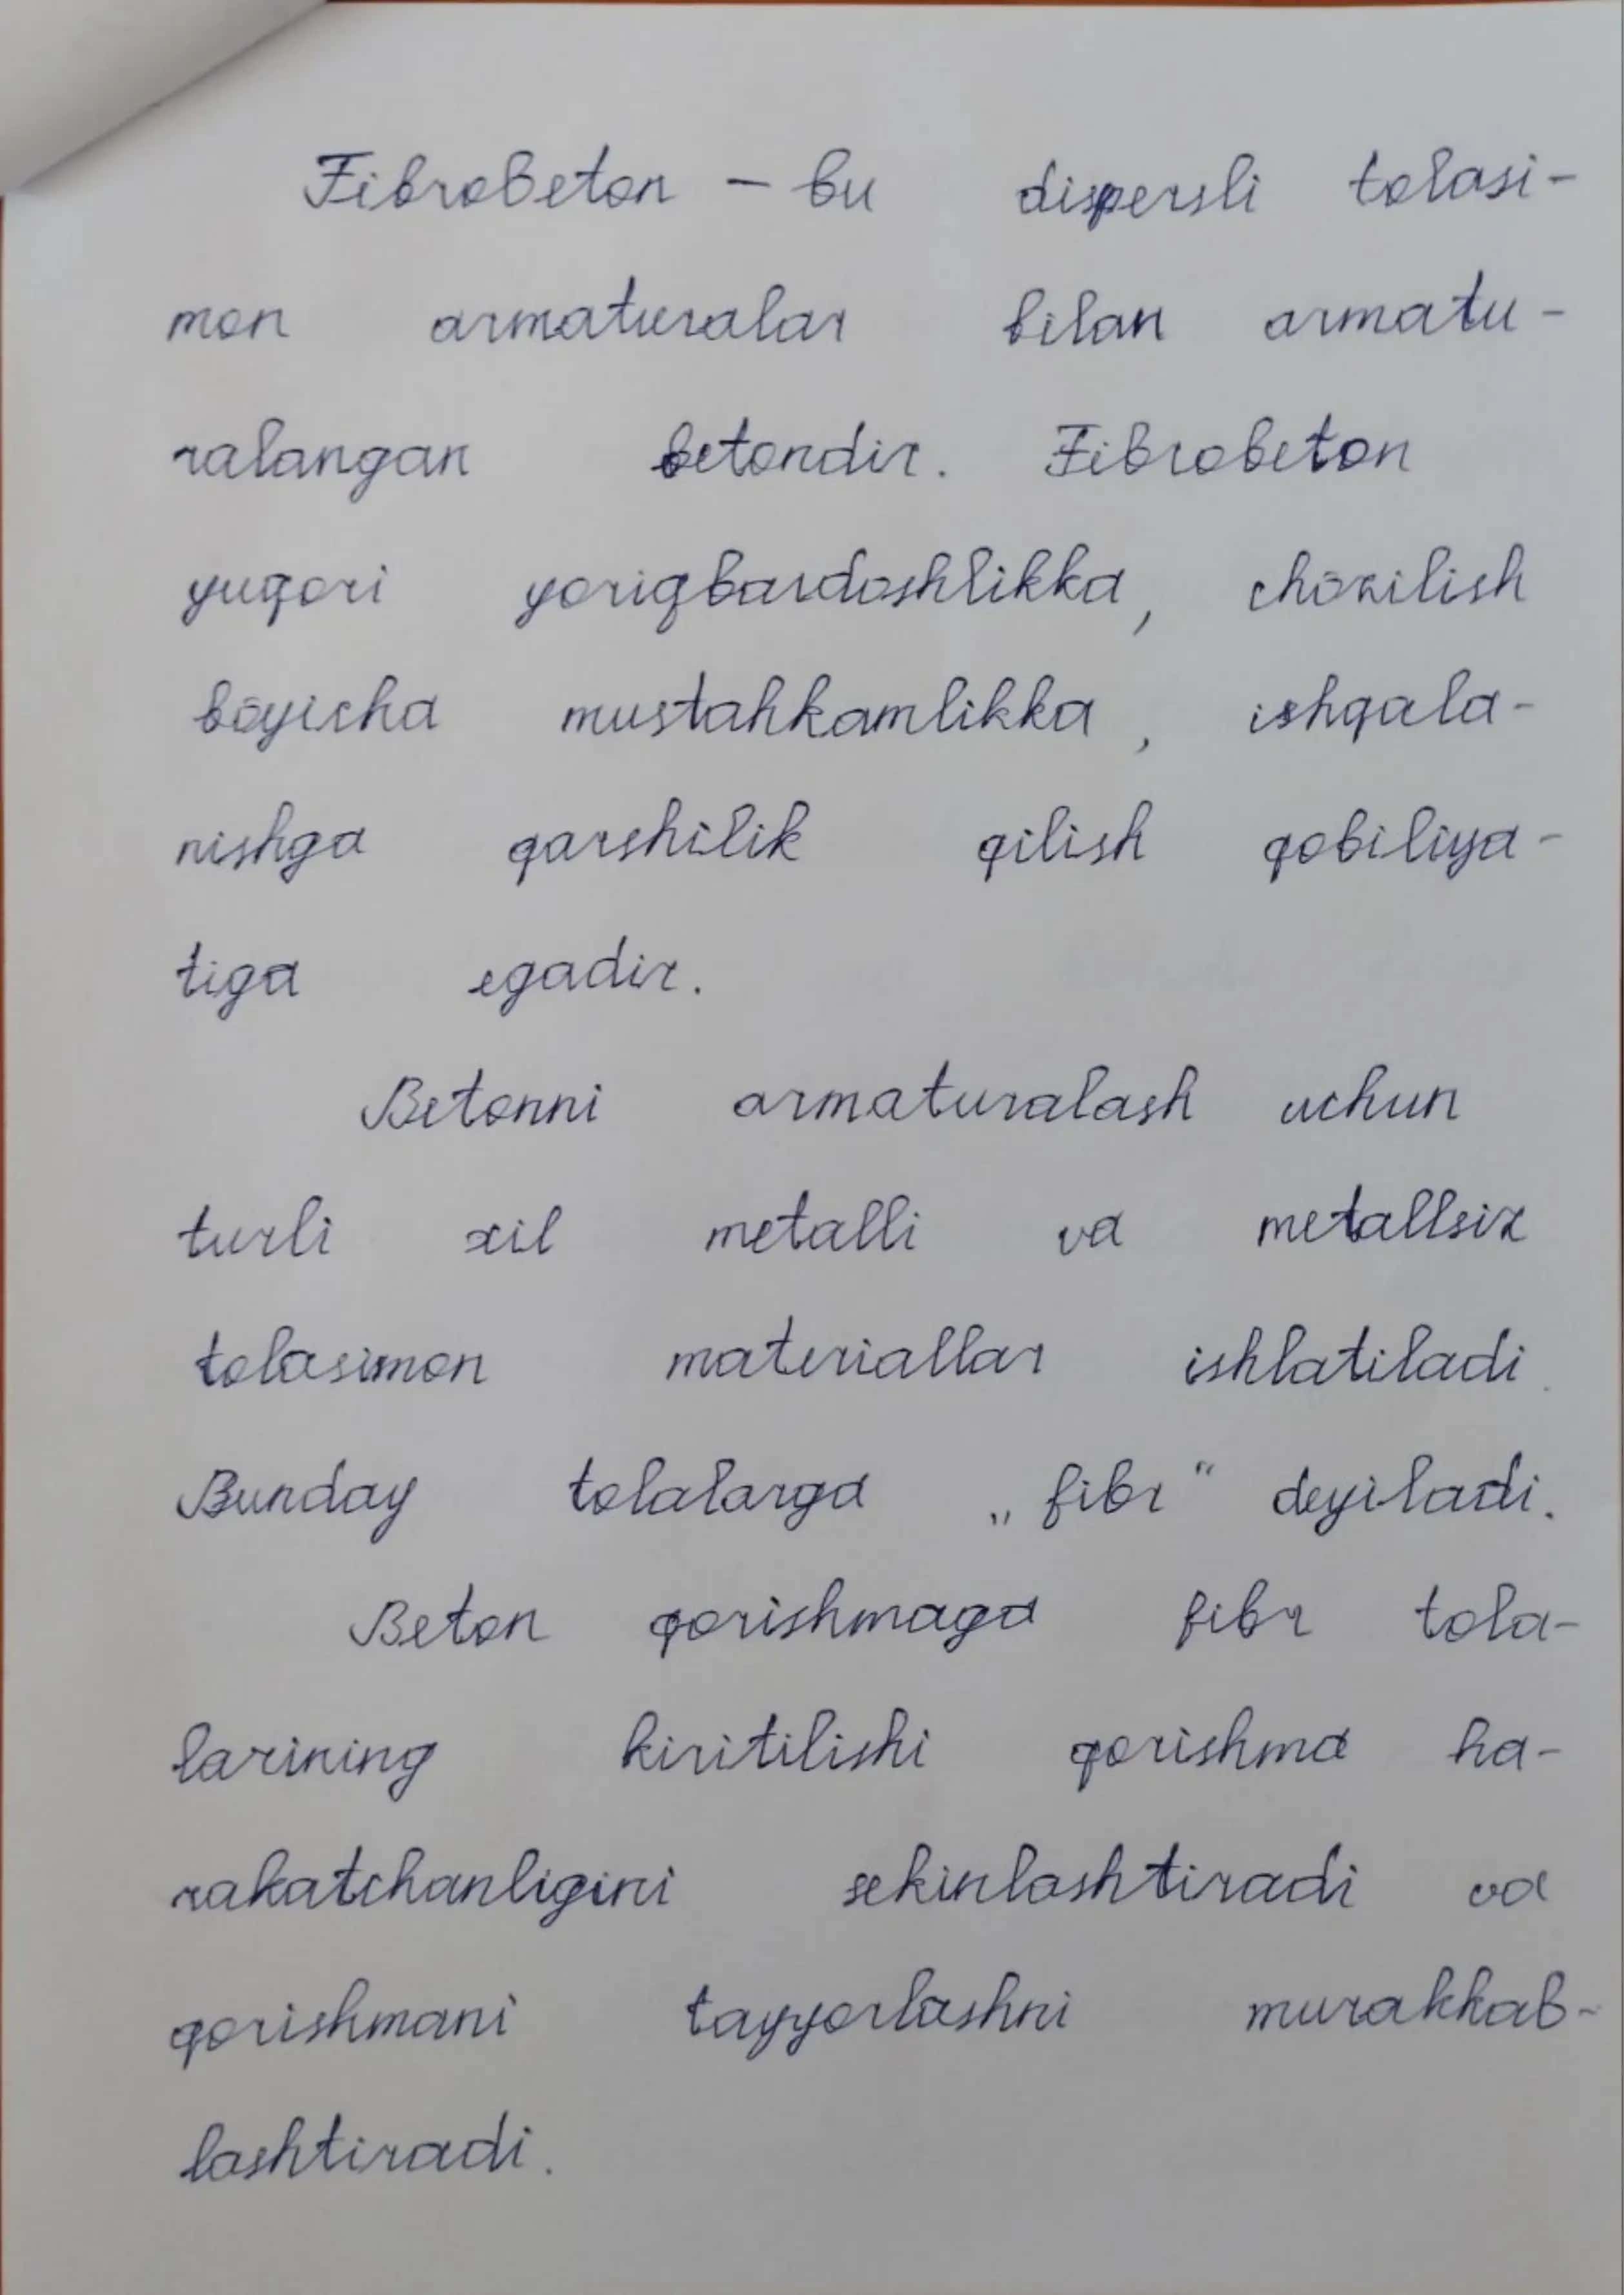 Fibrobeton – bu dispersli tolasi-
mon armaturalar bilan armatu-
ralangan betondir. Fibrobeton
yuqori yoriqbardoshlikka, chōzilish
bōyicha mustahkamlikka, ishqala-
nishga qarshilik qilish qobiliya-
tiga egadir.
Betonni armaturalash uchun
turli xil metalli va metallsiz
tolasimon materiallar ishlatiladi.
Bunday tolalarga „fibr“ deyiladi.
Beton qorishmaga fibr tola-
larining kiritilishi qorishma ha-
rakatchanligini sekinlashtiradi va
qorishmani tayyorlashni murakkab-
lashtiradi.